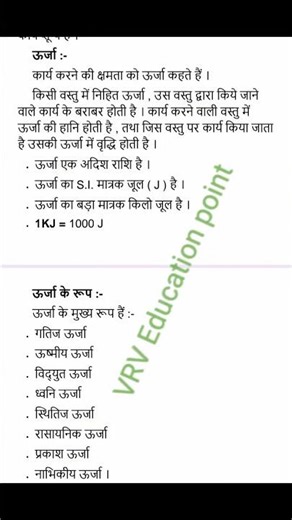 ऊर्जा :-
कार्य करने की क्षमता को ऊर्जा कहते हैं ।
किसी वस्तु में निहित ऊर्जा , उस वस्तु द्वारा किये जाने
वाले कार्य के बराबर होती है । कार्य करने वाली वस्तु में
ऊर्जा की हानि होती है , तथा जिस वस्तु पर कार्य किया जाता
है उसकी ऊर्जा में वृद्धि होती है ।
. ऊर्जा एक अदिश राशि है ।
. ऊर्जा का S.I. मात्रक जूल ( J ) है ।
. ऊर्जा का बड़ा मात्रक किलो जूल है ।
. 1KJ = 1000 J
VRV Education point
ऊर्जा के रूप :-
ऊर्जा के मुख्य रूप हैं :-
. गतिज ऊर्जा
. ऊष्मीय ऊर्जा
. विद्युत ऊर्जा
. ध्वनि ऊर्जा
. स्थितिज ऊर्जा
. रासायनिक ऊर्जा
. प्रकाश ऊर्जा
. नाभिकीय ऊर्जा ।